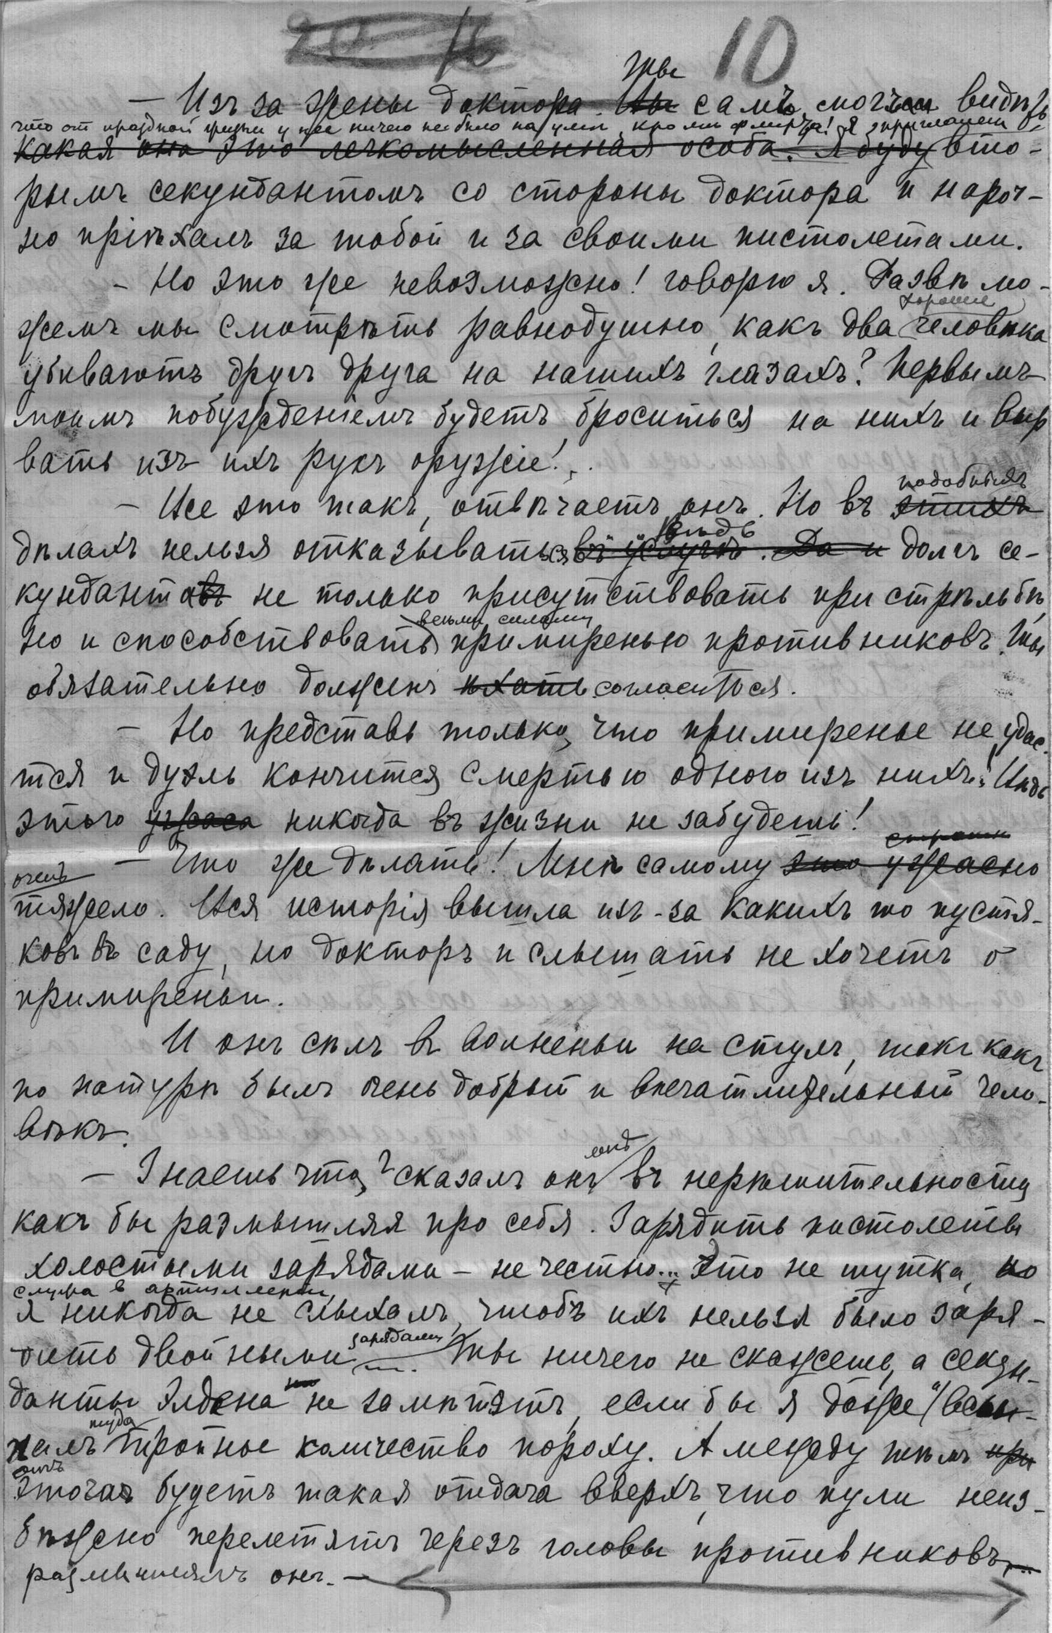 10
Ты
— Изъ за жены доктора. Вы самъ могъ видѣть
что от праздной жизни у нея ничего не было на умѣ, кромѣ флирта! Я приглашенъ
какая она это легкомысленная особа. Я буду вто-
рымъ секундантомъ со стороны доктора и нароч-
но пріѣхалъ за тобой и за своими пистолетами.
— Но это же невозможно! говорю я. Развѣ мо-
хорошіе
жемъ мы смотрѣть равнодушно, какъ два человѣка
убиваютъ другъ друга на нашихъ глазахъ? Первымъ
моимъ побужденіемъ будетъ броситься на нихъ и выр
вать изъ ихъ рукъ оружіе!..
подобныхъ
— Все это такъ, отвѣчаетъ онъ. Но въ этихъ
вѣдь
дѣлахъ нельзя отказываться въ услугѣ. Да и долгъ се-
кундантовъ не только присутствовать при стрѣльбѣ,
всѣми силами
но и способствовать примиренью противниковъ. Ты
обязательно долженъ ѣхать согласиться.
— Но представь только, что примиренье не удас-
тся и дуэль кончится смертью одного изъ нихъ! Вѣдь
этого ужаса никогда въ жизни не забудешь!
страшно
— Что же дѣлать! Мнѣ самому это ужасно
очень
тяжело. Вся исторія вышла изъ-за какихъ то пустя-
ковъ въ саду, но докторъ и слышать не хочетъ о
примиреньи.
И онъ сѣлъ въ волненьи на стулъ, такъ какъ
по натурѣ былъ очень добрый и впечатлительный чело-
вѣкъ.
— Знаешь что? сказалъ онъ въ нерѣшительности,
какъ бы размышляя про себя. Зарядить пистолеты
холостыми зарядами — не честно... Это не шутка, но
служа в артиллеріи,
я никогда не слыхалъ, чтобъ ихъ нельзя было заря-
зарядами
дить двойными. Ты ничего не скажешь, а секун-
данты Элдена не замѣтятъ, если бы я даже всы-
туда
палъ тройное количество пороху. А между тѣмъ при
отъ
этого будетъ такая отдача вверхъ, что пули неиз-
бѣжно перелетятъ черезъ головы противниковъ...
размышлялъ онъ. —